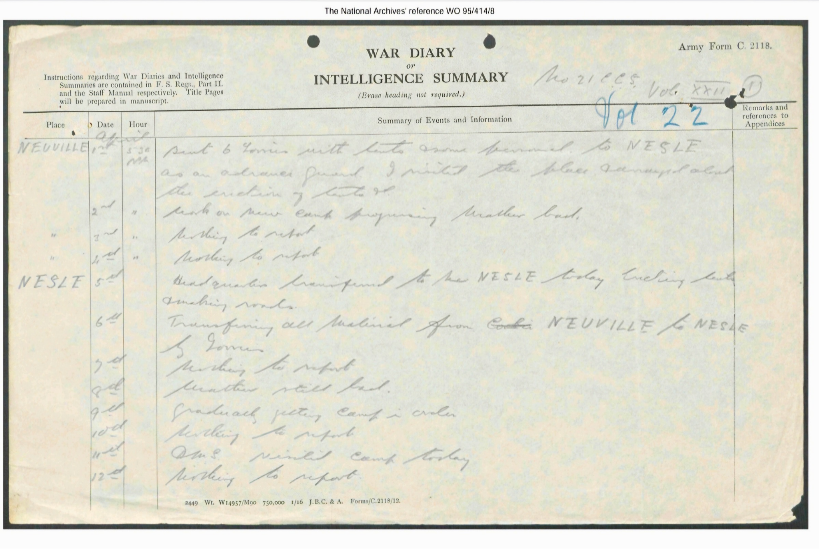 The National Archives' reference WO 95/414/8
Army Form C. 2118.
WAR DIARY
or
INTELLIGENCE SUMMARY
(Erase heading not required.)
Instructions regarding War Diaries and Intelligence
Summaries are contained in F. S. Regs., Part II.
and the Staff Manual respectively. Title Pages
will be prepared in manuscript.
No 21 CCS. Vol. XXII 1
Vol 22
Place Date Hour Summary of Events and Information Remarks and
references to
Appendices
April
NEUVILLE 1st 5.30 Sent 6 lorries with tents & some personnel to NESLE
pm as an advance guard. I visited the place & arranged about
the erection of tents &c
2nd " Work on new camp progressing Weather bad.
" 3rd " Nothing to report
" 4th " Nothing to report
NESLE 5th Headquarters transferred to NESLE today tents
& making roads.
6th Transferring all material from NEUVILLE to NESLE
by lorries
7th Nothing to report
8th Weather still bad.
9th Gradually getting camp in order
10th Nothing to report
11th DMS visited camp today
12th Nothing to report
2449 Wt. W14957/M90 750,000 1/16 J.B.C. & A. Forms/C.2118/12.